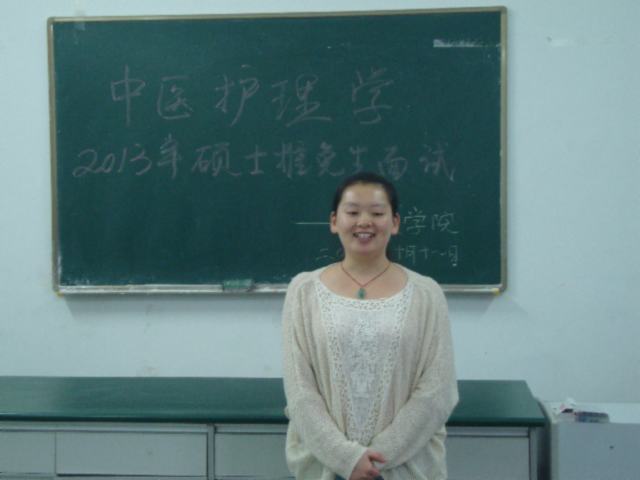 中医护理学
2013年硕士推免生面试
——学院
二 十月十一日